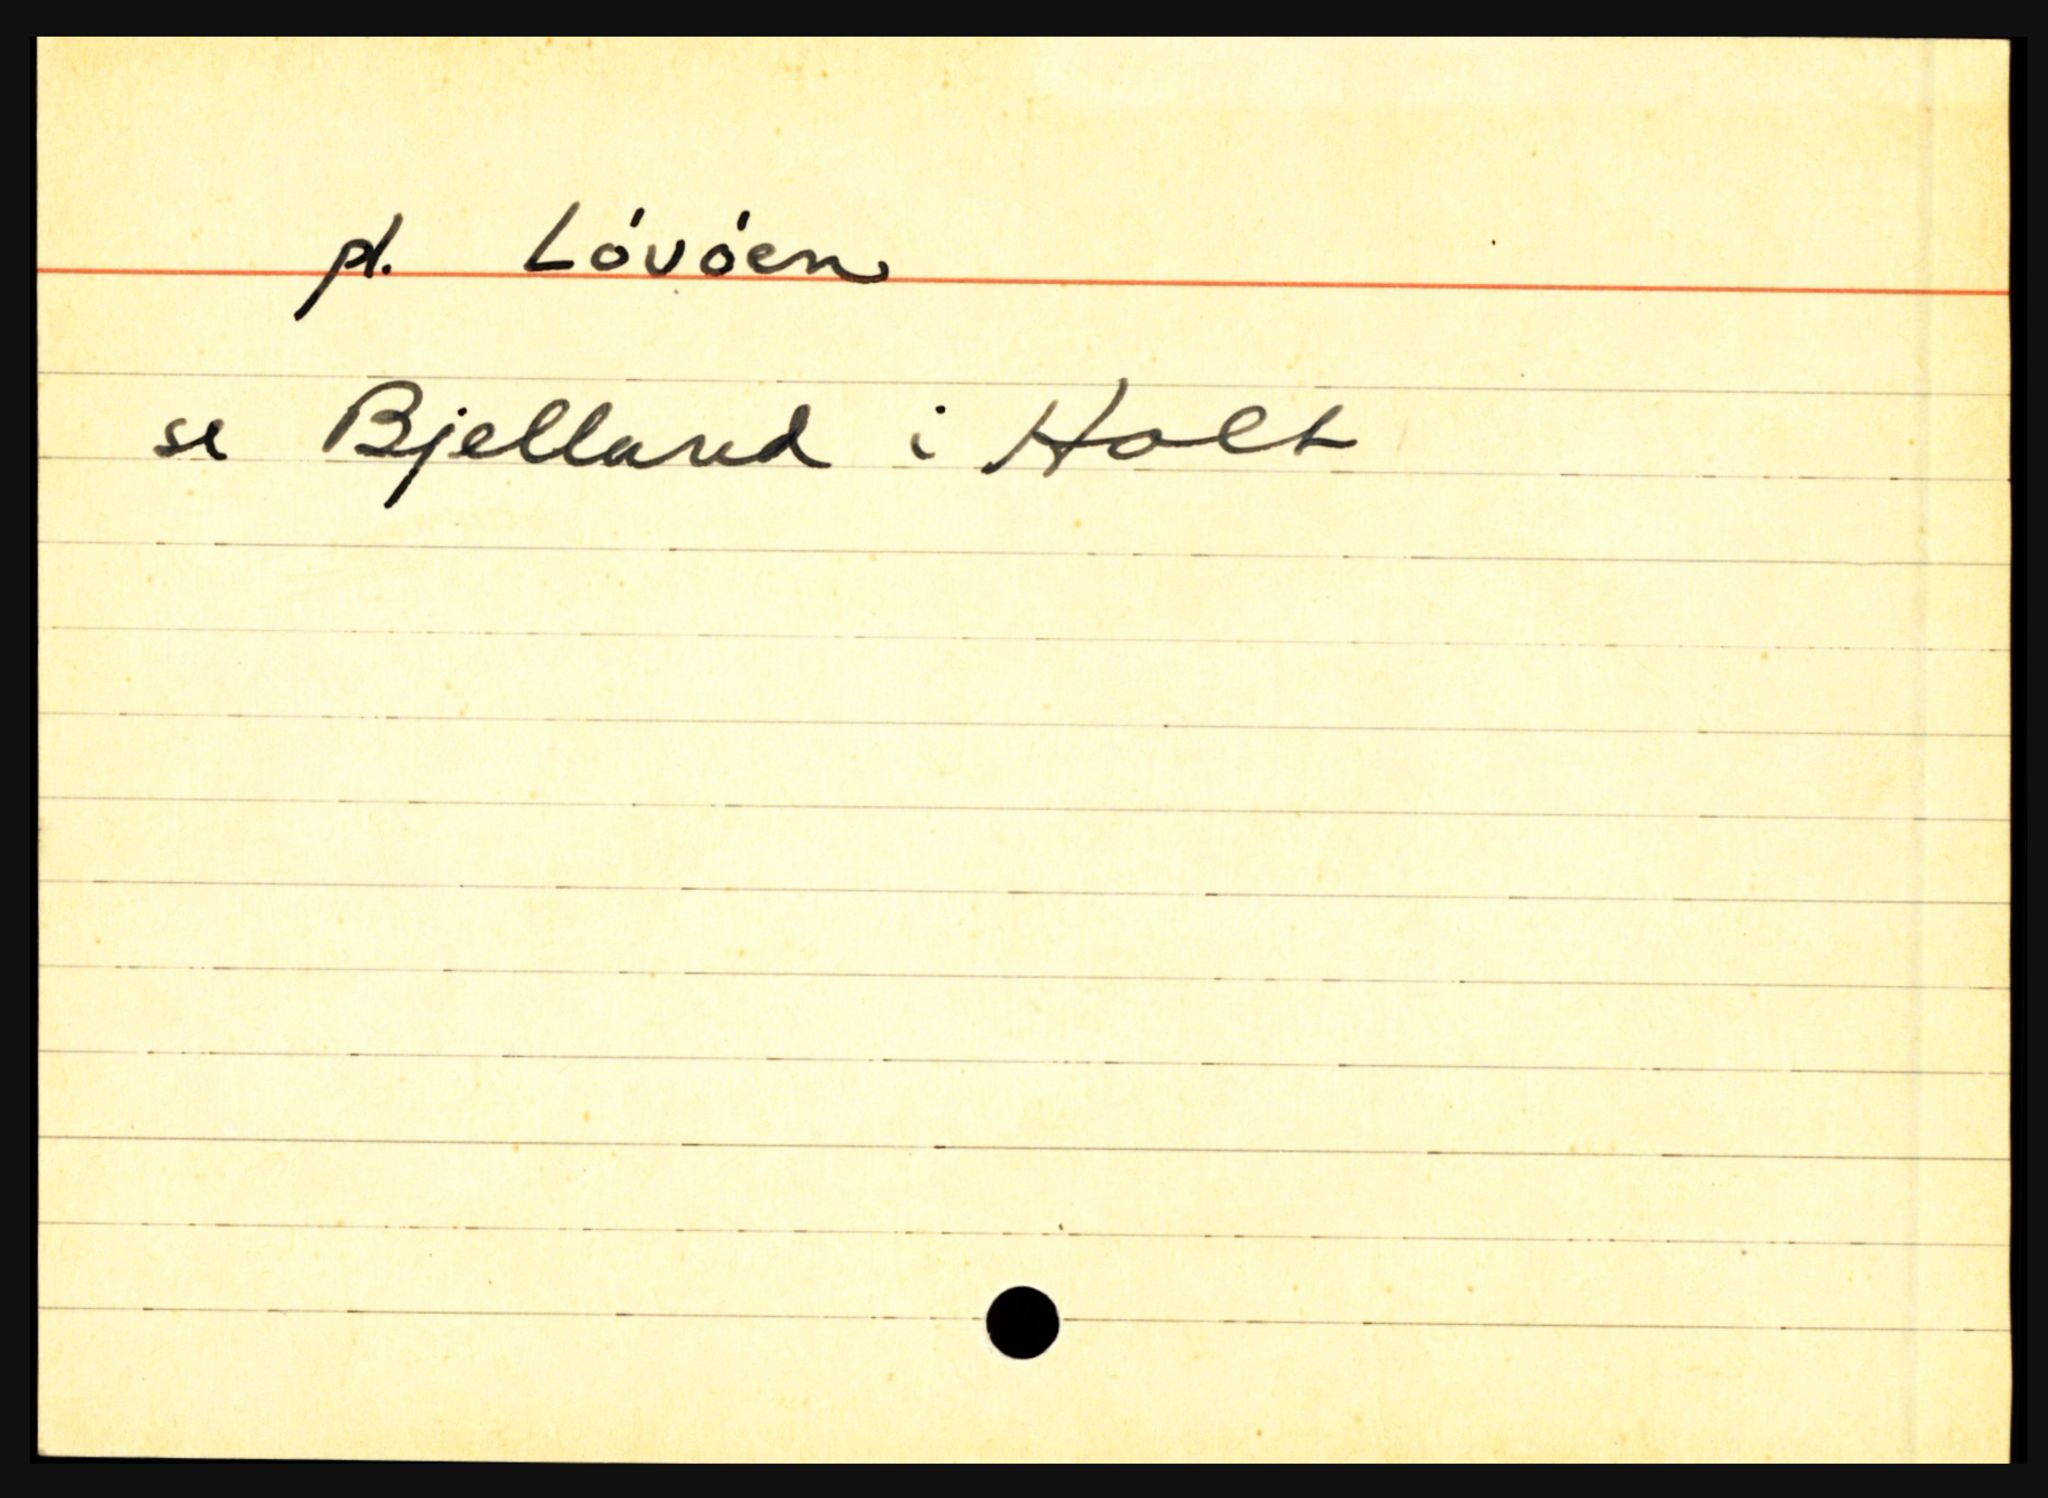 pl. Lóvóen
se Bjelland i Holt